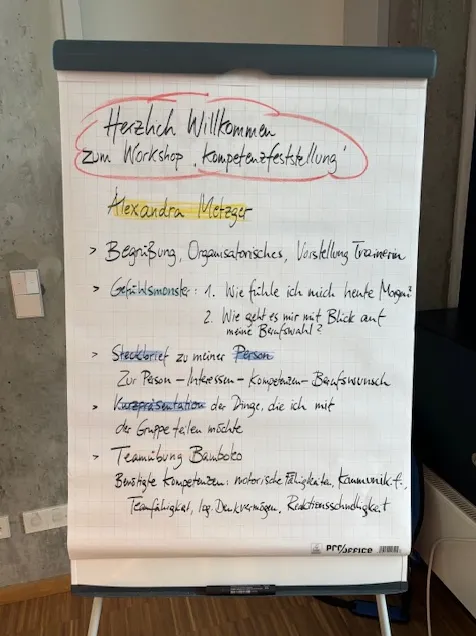 Herzlich Willkommen
zum Workshop „Kompetenzfeststellung"
Alexandra Metzger
> Begrüßung, Organisatorisches, Vorstellung Trainerin
> Gefühlsmonster: 1. Wie fühle ich mich heute Morgen?
2. Wie geht es mir mit Blick auf
meine Berufswahl?
> Steckbrief zu meiner Person
Zur Person – Interessen – Kompetenzen – Berufswunsch
> Kurzpräsentation der Dinge, die ich mit
der Gruppe teilen möchte
> Teamübung Bamboko
Benötigte Kompetenzen: motorische Fähigkeiten, Kommunik.f.,
Teamfähigkeit, log. Denkvermögen, Reaktionsschnelligkeit
PRO/OFFICE